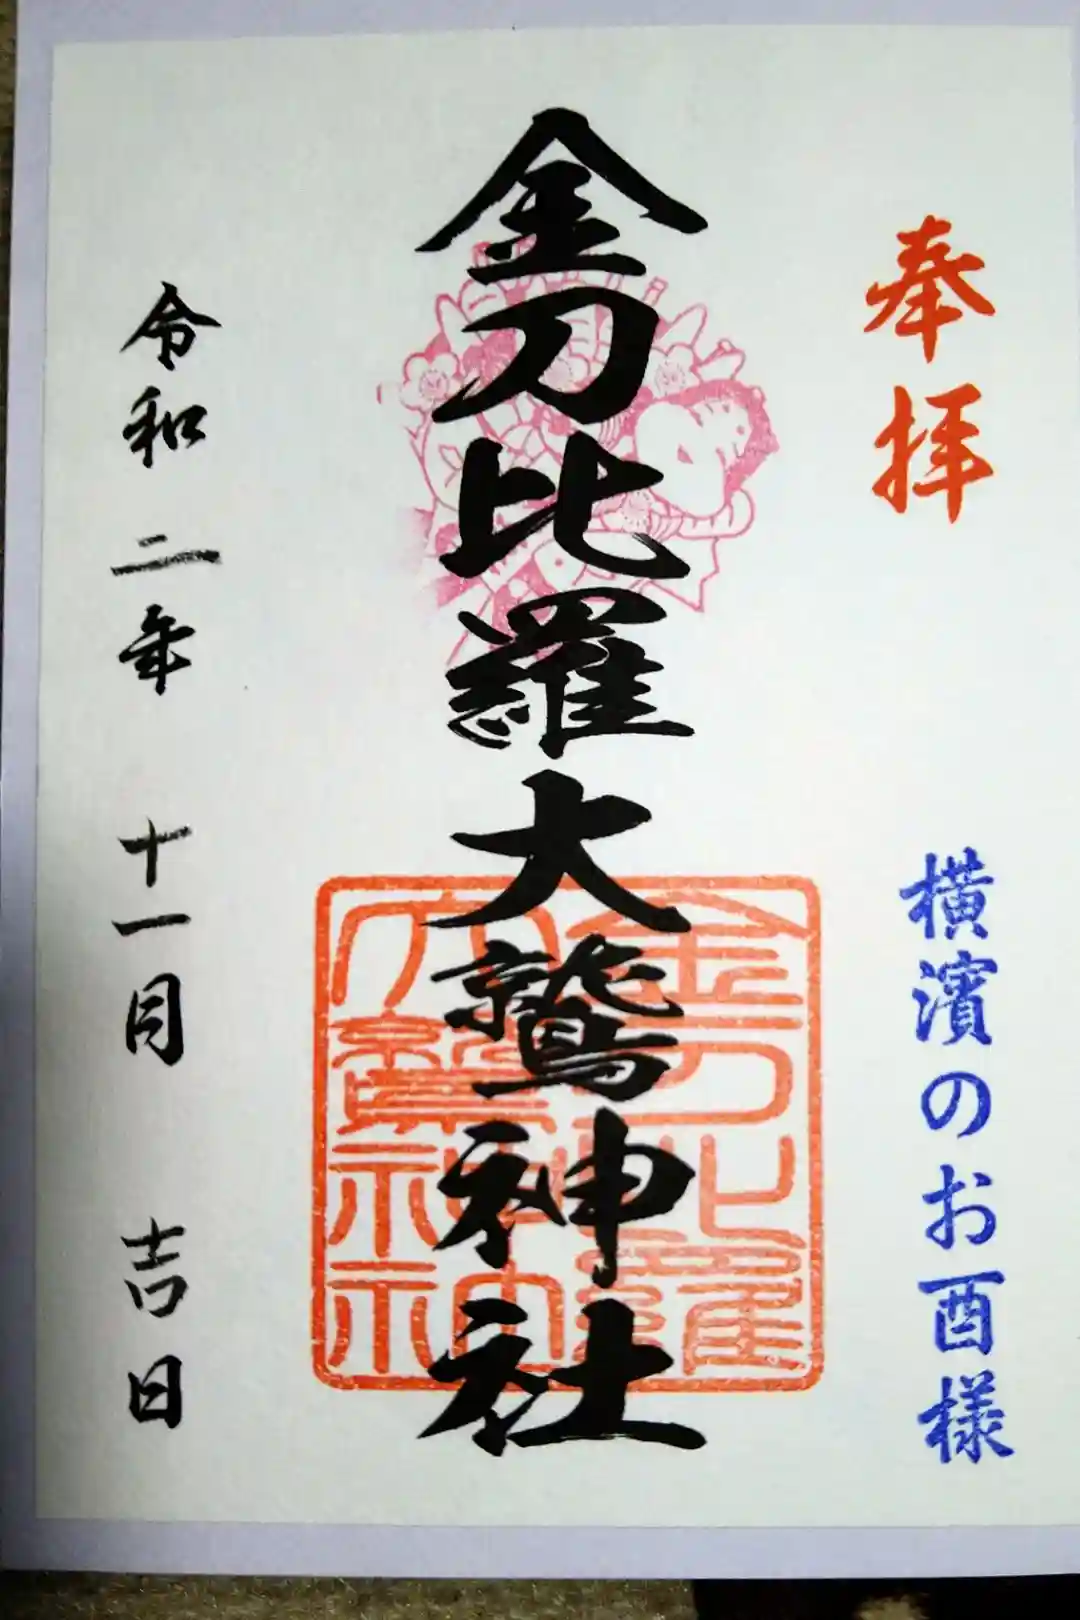 奉拝
横濱のお酉様
金刀比羅大鷲神社
金刀比羅
大鷲神社
令和二年 十一月 吉日